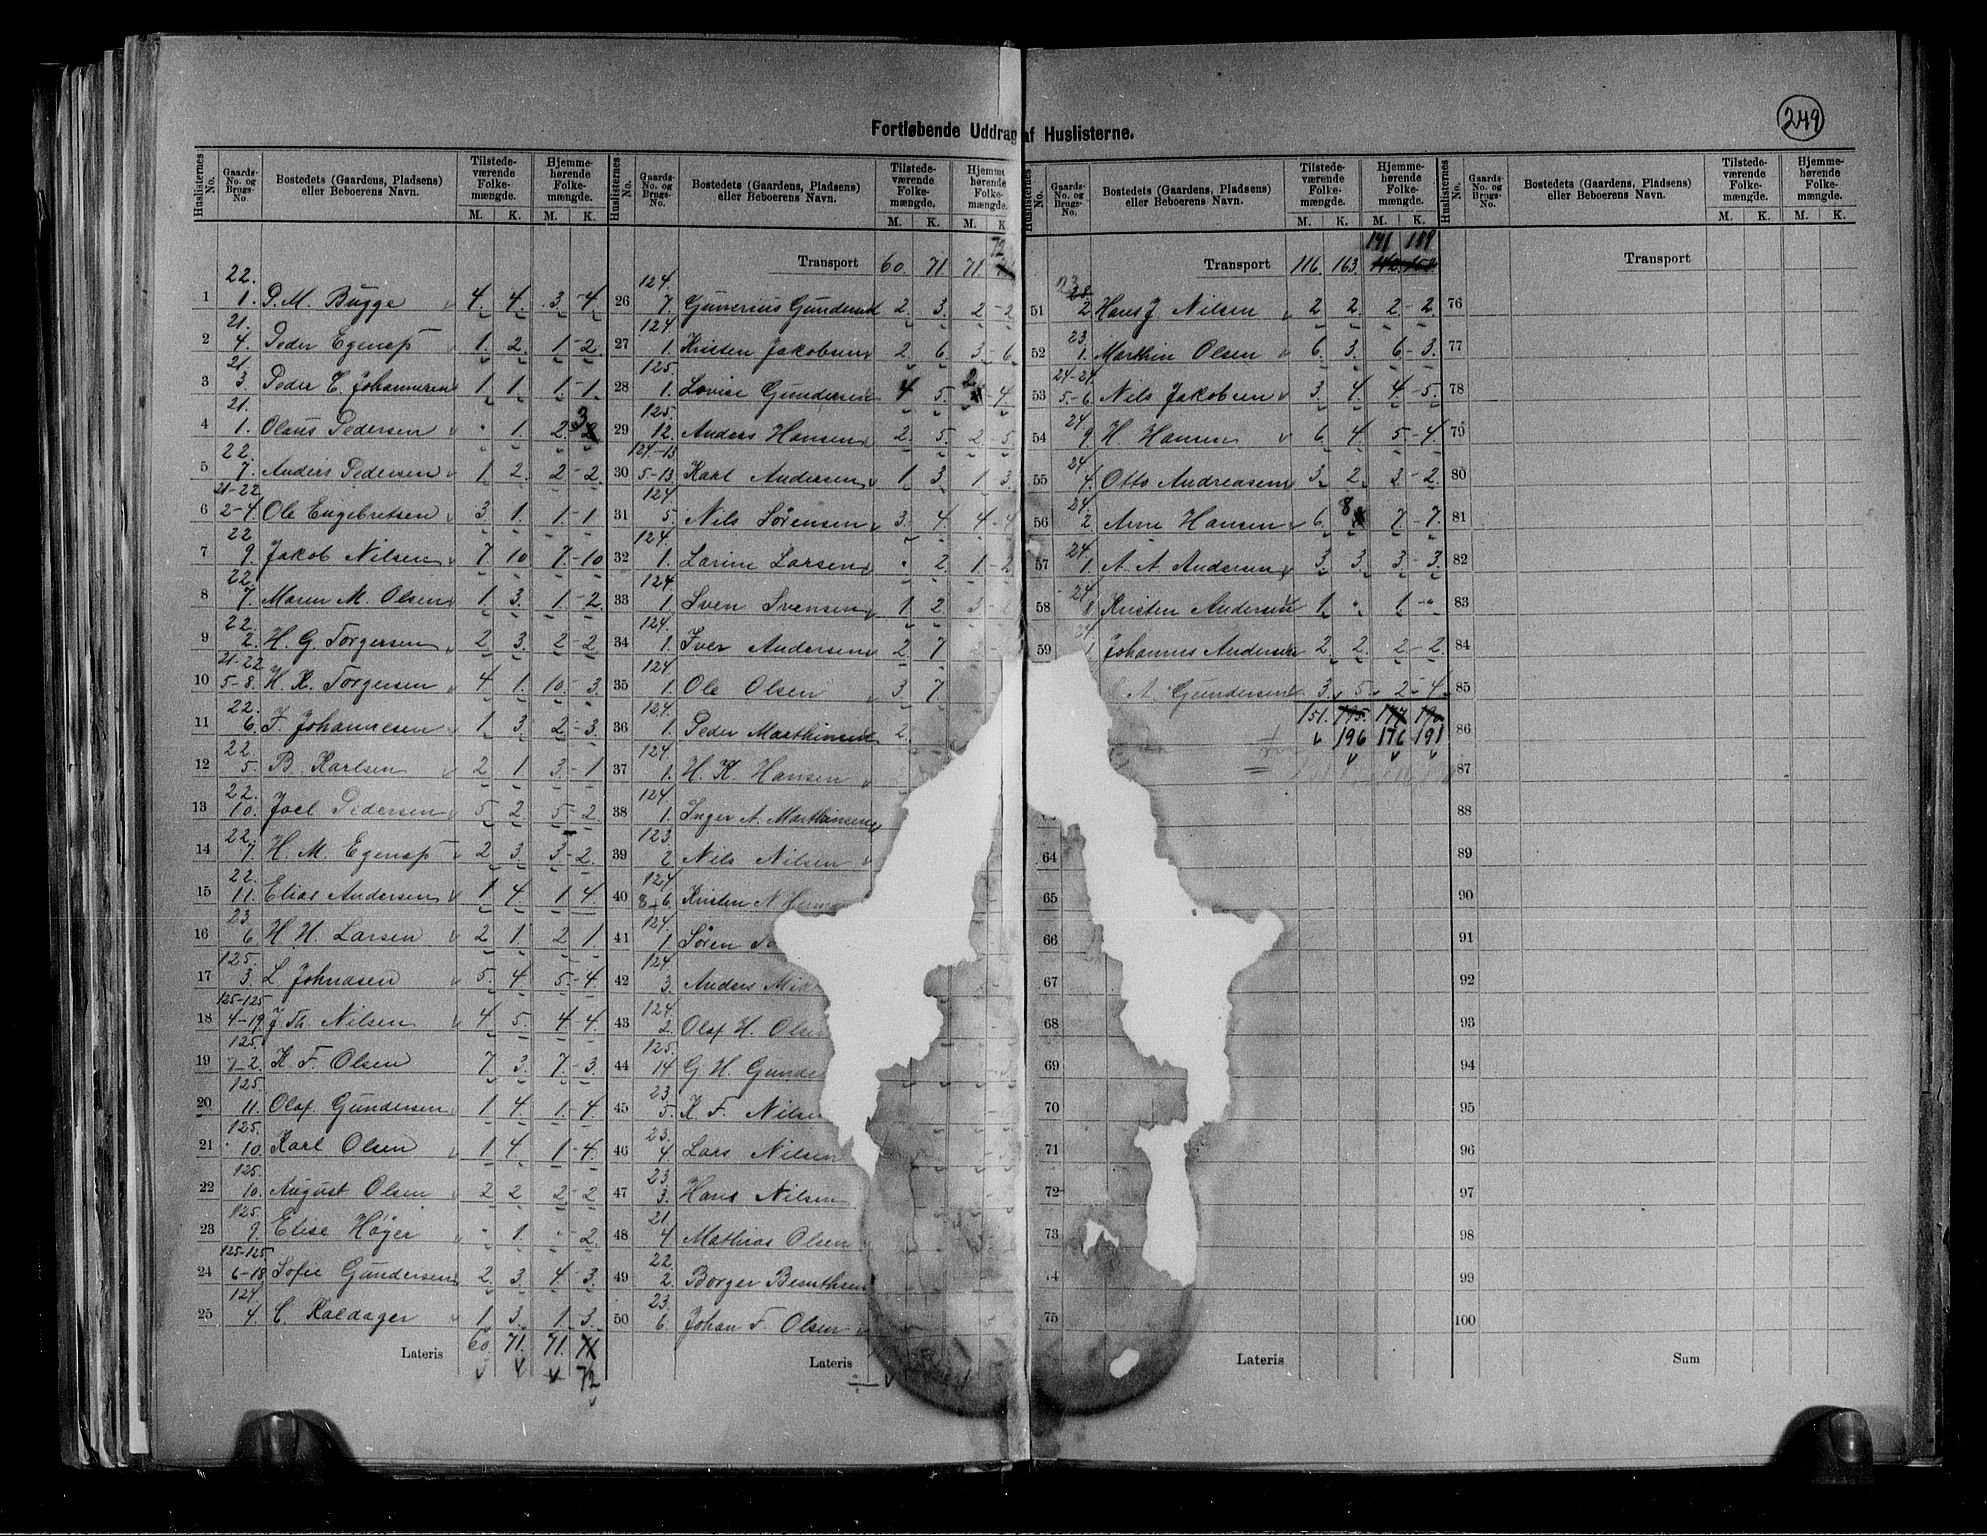 249
Fortløbende Uddrag af Huslisterne.
Huslisternes No. Gaards-No. og Brugs-No. Bostedets (Gaardens, Pladsens) eller Beboerens Navn. Tilstedeværende Folkemængde. M. K. Hjemmehørende Folkemængde. M. K.
22.
1 1. P. M. Bugge 4. 4. 3 - 4
21.
2 4. Peder 1. 2. 1 - 2.
21.
3 3. Peder E. Johannesen 1 1. 1 - 1.
21.
4 1. Olaus Pedersen " 1. 2. 3
22.
5 7. Anders Pedersen 1 2. 2 - 2.
21-22
6 2-4. Ole Engebretsen 3 1. 1 - 1
22
7 9. Jakob Nilsen 7 10 7 - 10
22.
8 7. Maren M. Olsen 1. 3. 1 - 2.
22.
9 2. H. G. Torgersen 2 3. 2 - 2
21-22
10 5-8. H. K. Torgersen 4 1. 10. - 3.
22.
11 6. F. Johannesen 1 3. 2 - 3.
22
12 5. B. Karlsen 2 1 3 - 1
22.
13 10. Joel Pedersen 5 2 5 - 2
22.
14 7. H. M. 2 3. 3 - 2.
22.
15 11. Elias Andersen 1 4. 1 4.
23.
16 6. H. H. Larsen 2 1. 2 1.
125.
17 3. L. Johnasen 5. 4 5. - 4.
125-125
18 4-19. J. Th. Nilsen 4 5. 4 - 4.
125.
19 7-2. K. F. Olsen 7 3. 7. - 3.
125
20 11. Olaf Gundersen 1 4. 1. - 4
125.
21 10. Karl Olsen 1 4. 1 - 4.
125.
22 10. August Olsen 2 2 2 - 2
125.
23 9. Elise Høyer " 1. " 2.
125-125
24 6-18. Sofie Gundersen 2. 3. 4 - 3.
124
25 4. C. Kaldager 1 3. 1. - 3.
Lateris 60. 71. 71. 71
72
Huslisternes No. Gaards-No. og Brugs-No. Bostedets (Gaardens, Pladsens) eller Beboerens Navn. Tilstedeværende Folkemængde. M. K. Hjemmehørende Folkemængde. M. K.
72
Transport 60. 71 71
124.
26 7. Gunerius 2. 3. 2 - 2
124
27 1. Kristen Jakobsen 2 6. 3 - 6.
125.
28 1. Lovise Gundersen 4 5. 2 4.
125.
29 12. Anders Hansen 2. 5. 2 - 5.
124-13
30 5-13. Karl Andersen 1 3. 1 3.
124
31 5. Nils Sørensen 3. 4. 4 - 4
124.
32 1. Larine Larsen " 2. 1 - 2
124
33 1 Sven Svensen 1. 2 3 - 2
124.
34 1. Iver Andersen 2 7
124
35 1. Ole Olsen 3. 7
124.
36 1. Peder Marthinsen 2.
124
37 1. H. K. Hansen
124.
38 1. Inger A. Marthinsen
123.
39 2 Nils Nilsen
124
40 8-6 Kristen N.
124.
41 1 Sören
124
42 3. Anders
124.
43 2. Olaf H.
125.
44 14 G. H.
23.
45 5. K. F. Nilsen
23.
46 4 Lars Nilsen
23.
47 3. Hans Nilsen
21.
48 4 Mathias Olsen
22.
49 2 Borger
23.
50 6. Johan F. Olsen
Lateris
Huslisternes No. Gaards-No. og Brugs-No. Bostedets (Gaardens, Pladsens) eller Beboerens Navn. Tilstedeværende Folkemængde. M. K. Hjemmehørende Folkemængde. M. K.
141 189
Transport 116. 163.
23
51 2 Hans J. Nilsen 2 2. 2 - 2.
23.
52 1. Marthin Olsen 6. 3. 6 - 3.
24-24
53 5.-6. Nils Jakobsen 3. 4. 4 - 5.
24
54 9. H. Hansen 6. 4. 5 - 4.
24.
55 4. Otto Andreasen 3. 2. 3 - 2.
24.
56 2 Arne Hansen 6. 8 7 - 7.
24.
57 1. A. A. Andersen 3 3. 3 - 3.
24
58 Kristen Andersen 1. " 1. "
24.
59 1 Johannes Andersen 2. 2. 2 - 2.
A. Gundersen 3. 5. 2 - 4.
151. 195. 177 190
196 176 191
64
65
66
67
68
69
70
71
72
73
74
75
Lateris
Huslisternes No. Gaards-No. og Brugs-No. Bostedets (Gaardens, Pladsens) eller Beboerens Navn. Tilstedeværende Folkemængde. M. K. Hjemmehørende Folkemængde. M. K.
Transport
76
77
78
79
80
81
82
83
84
85
86
87
88
89
90
91
92
93
94
95
96
97
98
99
100
Sum